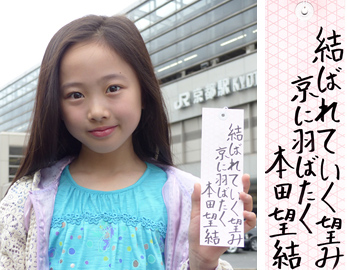 JR 京都駅 KYO
結ばれていく望み
京に羽ばたく
本田望結
結ばれていく望み
京に羽ばたく
本田望結